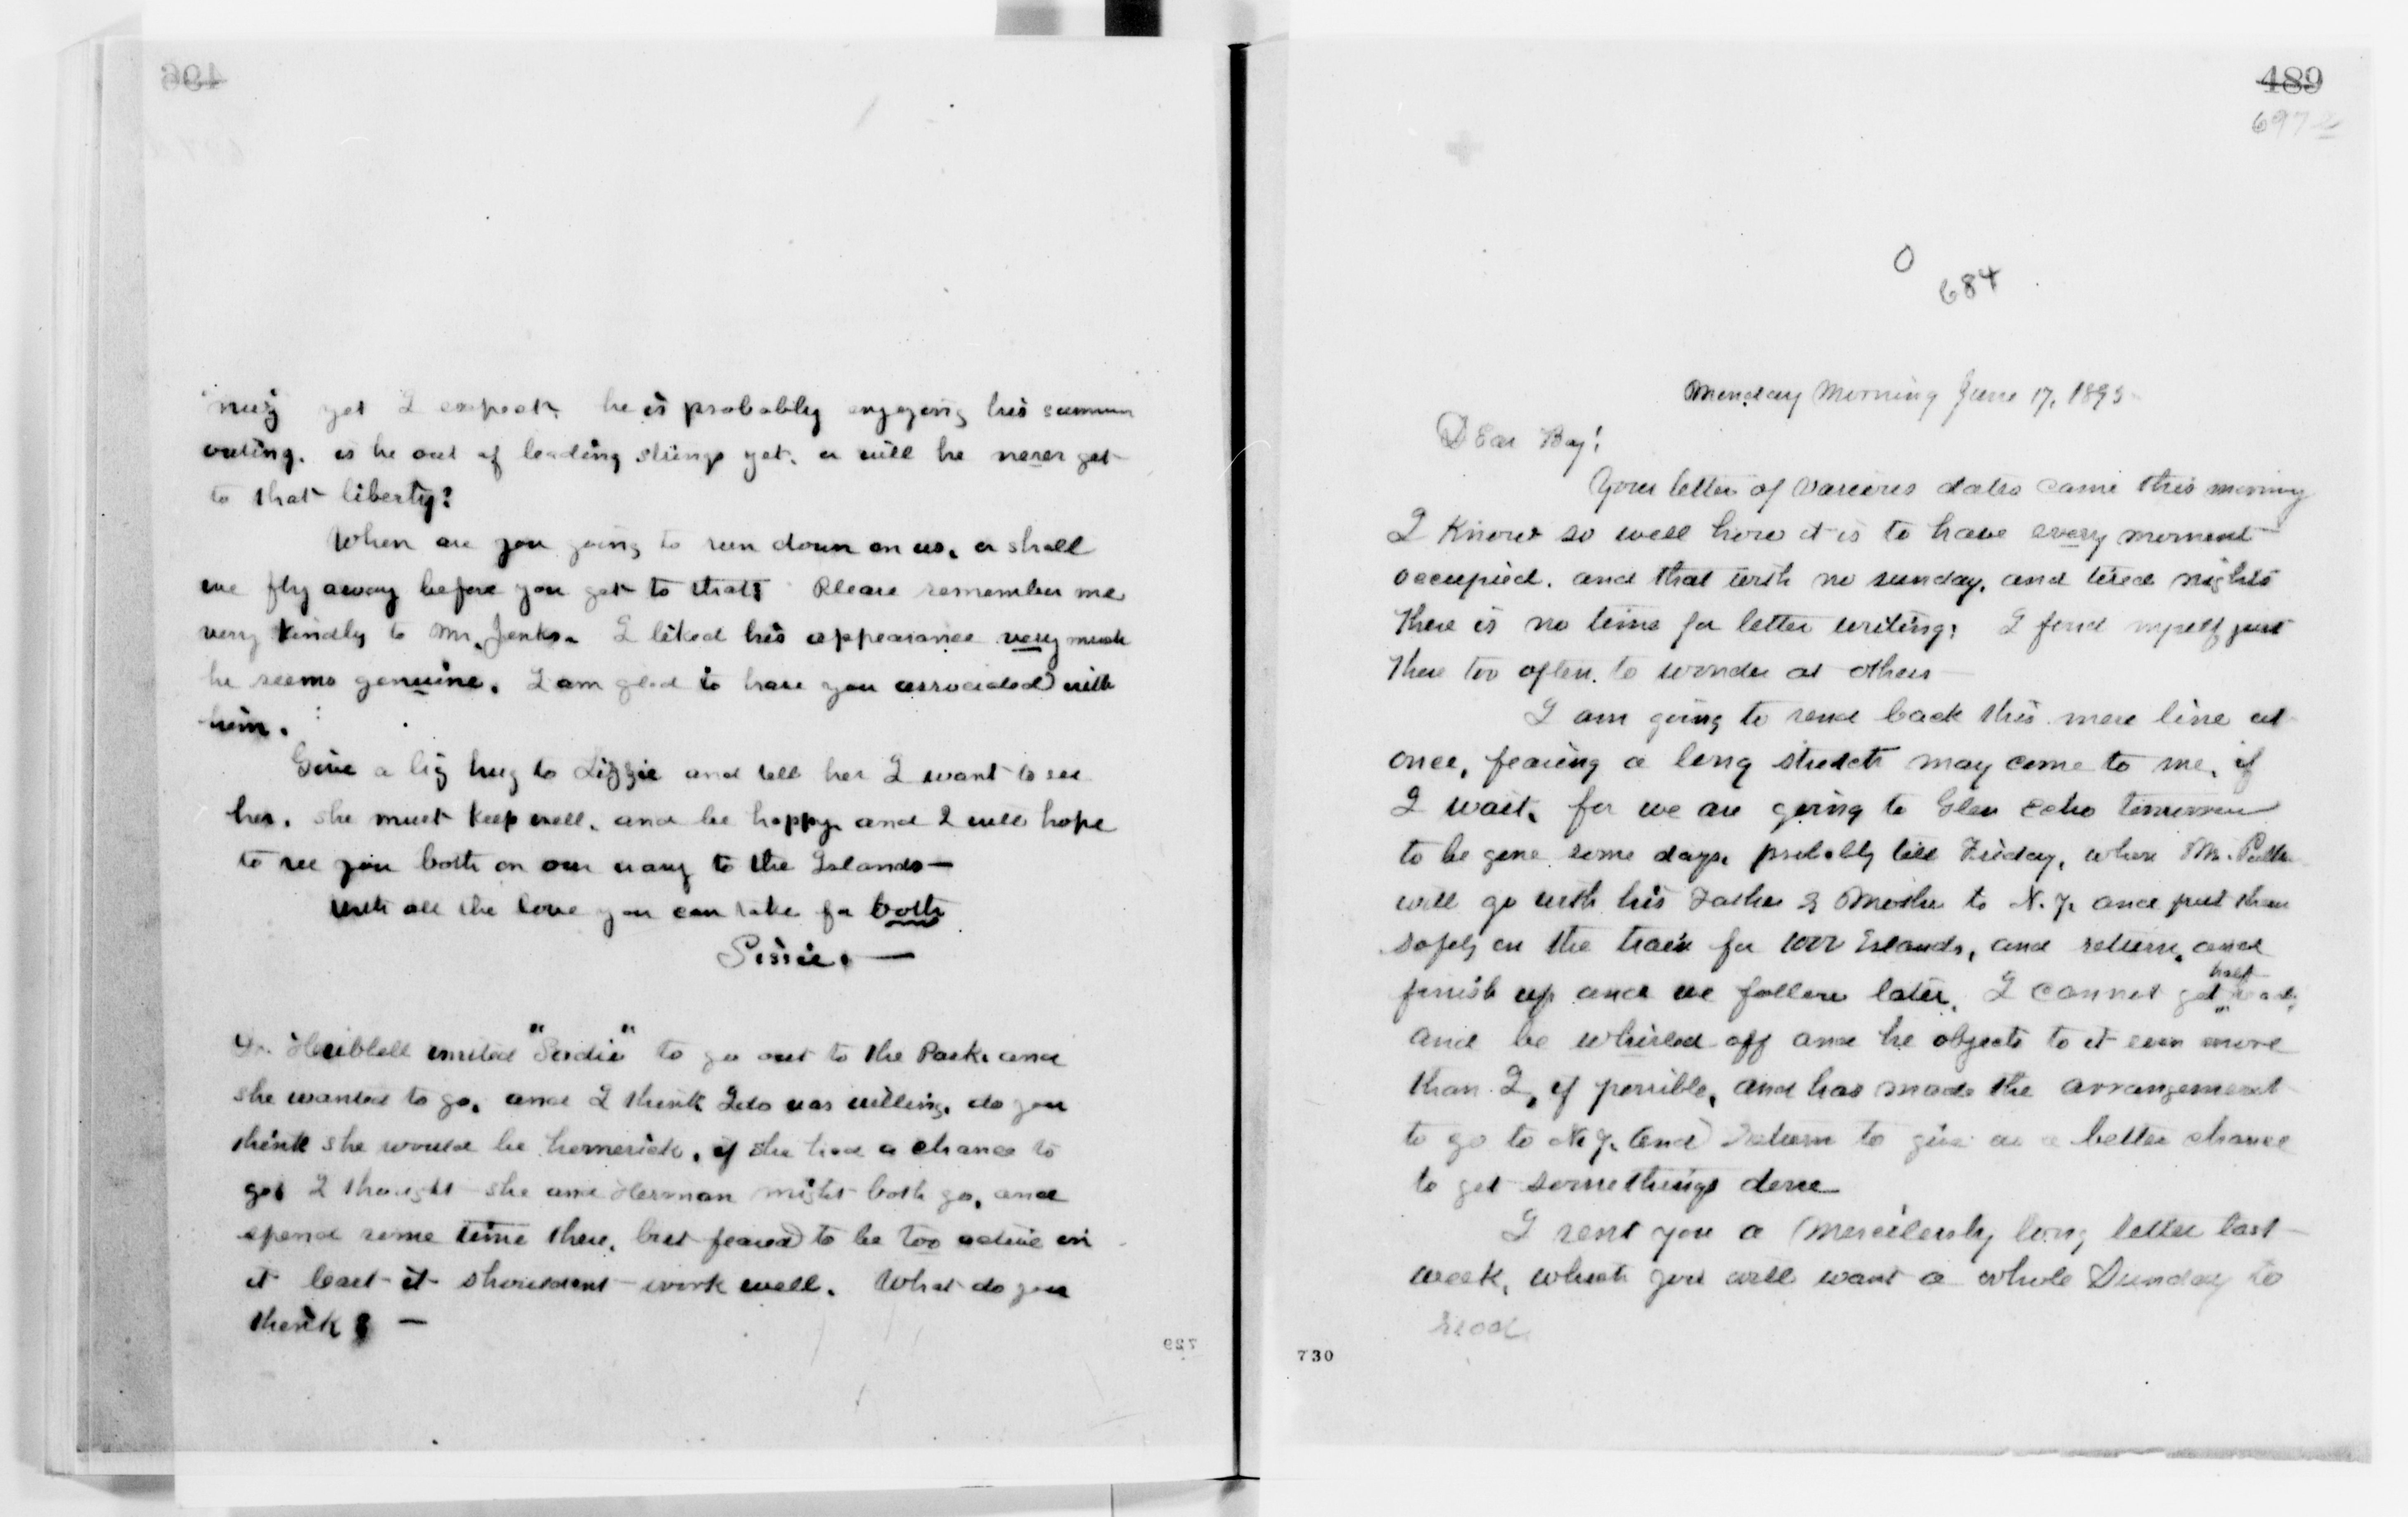 496
yet I expect he is probably enjoying his summer
outing. is he out of leading strings yet. or will he never get
to that liberty?
When are you going to run down on us, or shall
we fly away before you get to that? Please remember me
very kindly to Mr. Jenks. I liked his appearance very much
he seems genuine. I am glad to have you associated with
him.
Give a big hug to Lizzie and tell her I want to see
her. she must keep well. and be happy and I will hope
to see you both on our way to the Islands—
With all the love you can take for both
Sissie. —
Dr. Hubbell invited "Sadie" to go out to the Park. and
she wanted to go. and I think Ida was willing. do you
think she would be homesick. if she had a chance to
go? I thought she and Herman might both go. and
spend some time there. but feared to be too active in
it least it shouldent work well. What do you
think? —
729
489
697
0
684
Monday Morning June 17, 1895
Dear Boy!
Your letter of various dates came this morning
I know so well how it is to have every moment
occupied. and that with no sunday, and tired nights
there is no time for letter writing: I find myself just
there too often. to wonder at others—
I am going to send back this mere line at
once, fearing a long stretch may come to me, if
I wait. for we are going to Glen Echo tomorrow
to be gone some days. probably till Friday, when Mr.
will go with his Father & Mother to N.Y. and put them
safely on the train for 1000 Islands, and return, and
finish up and we follow later. I cannot get half ready
and be whirled off and he objects to it even more
than I, if possible, and has made the arrangement
to go to N.Y. and return to give us a better chance
to get somethings done
I sent you a mercilessly long letter last
week, which you will want a whole Sunday to
read
730